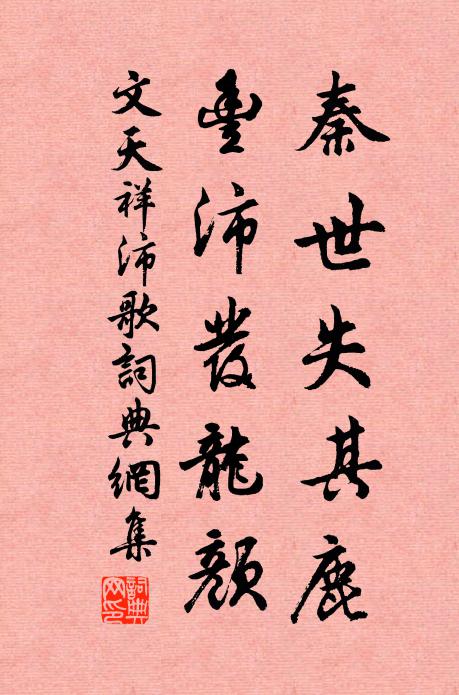 秦世失其鹿
豐沛發龍顏
文天祥沛歌詞典網集
詞典
网印